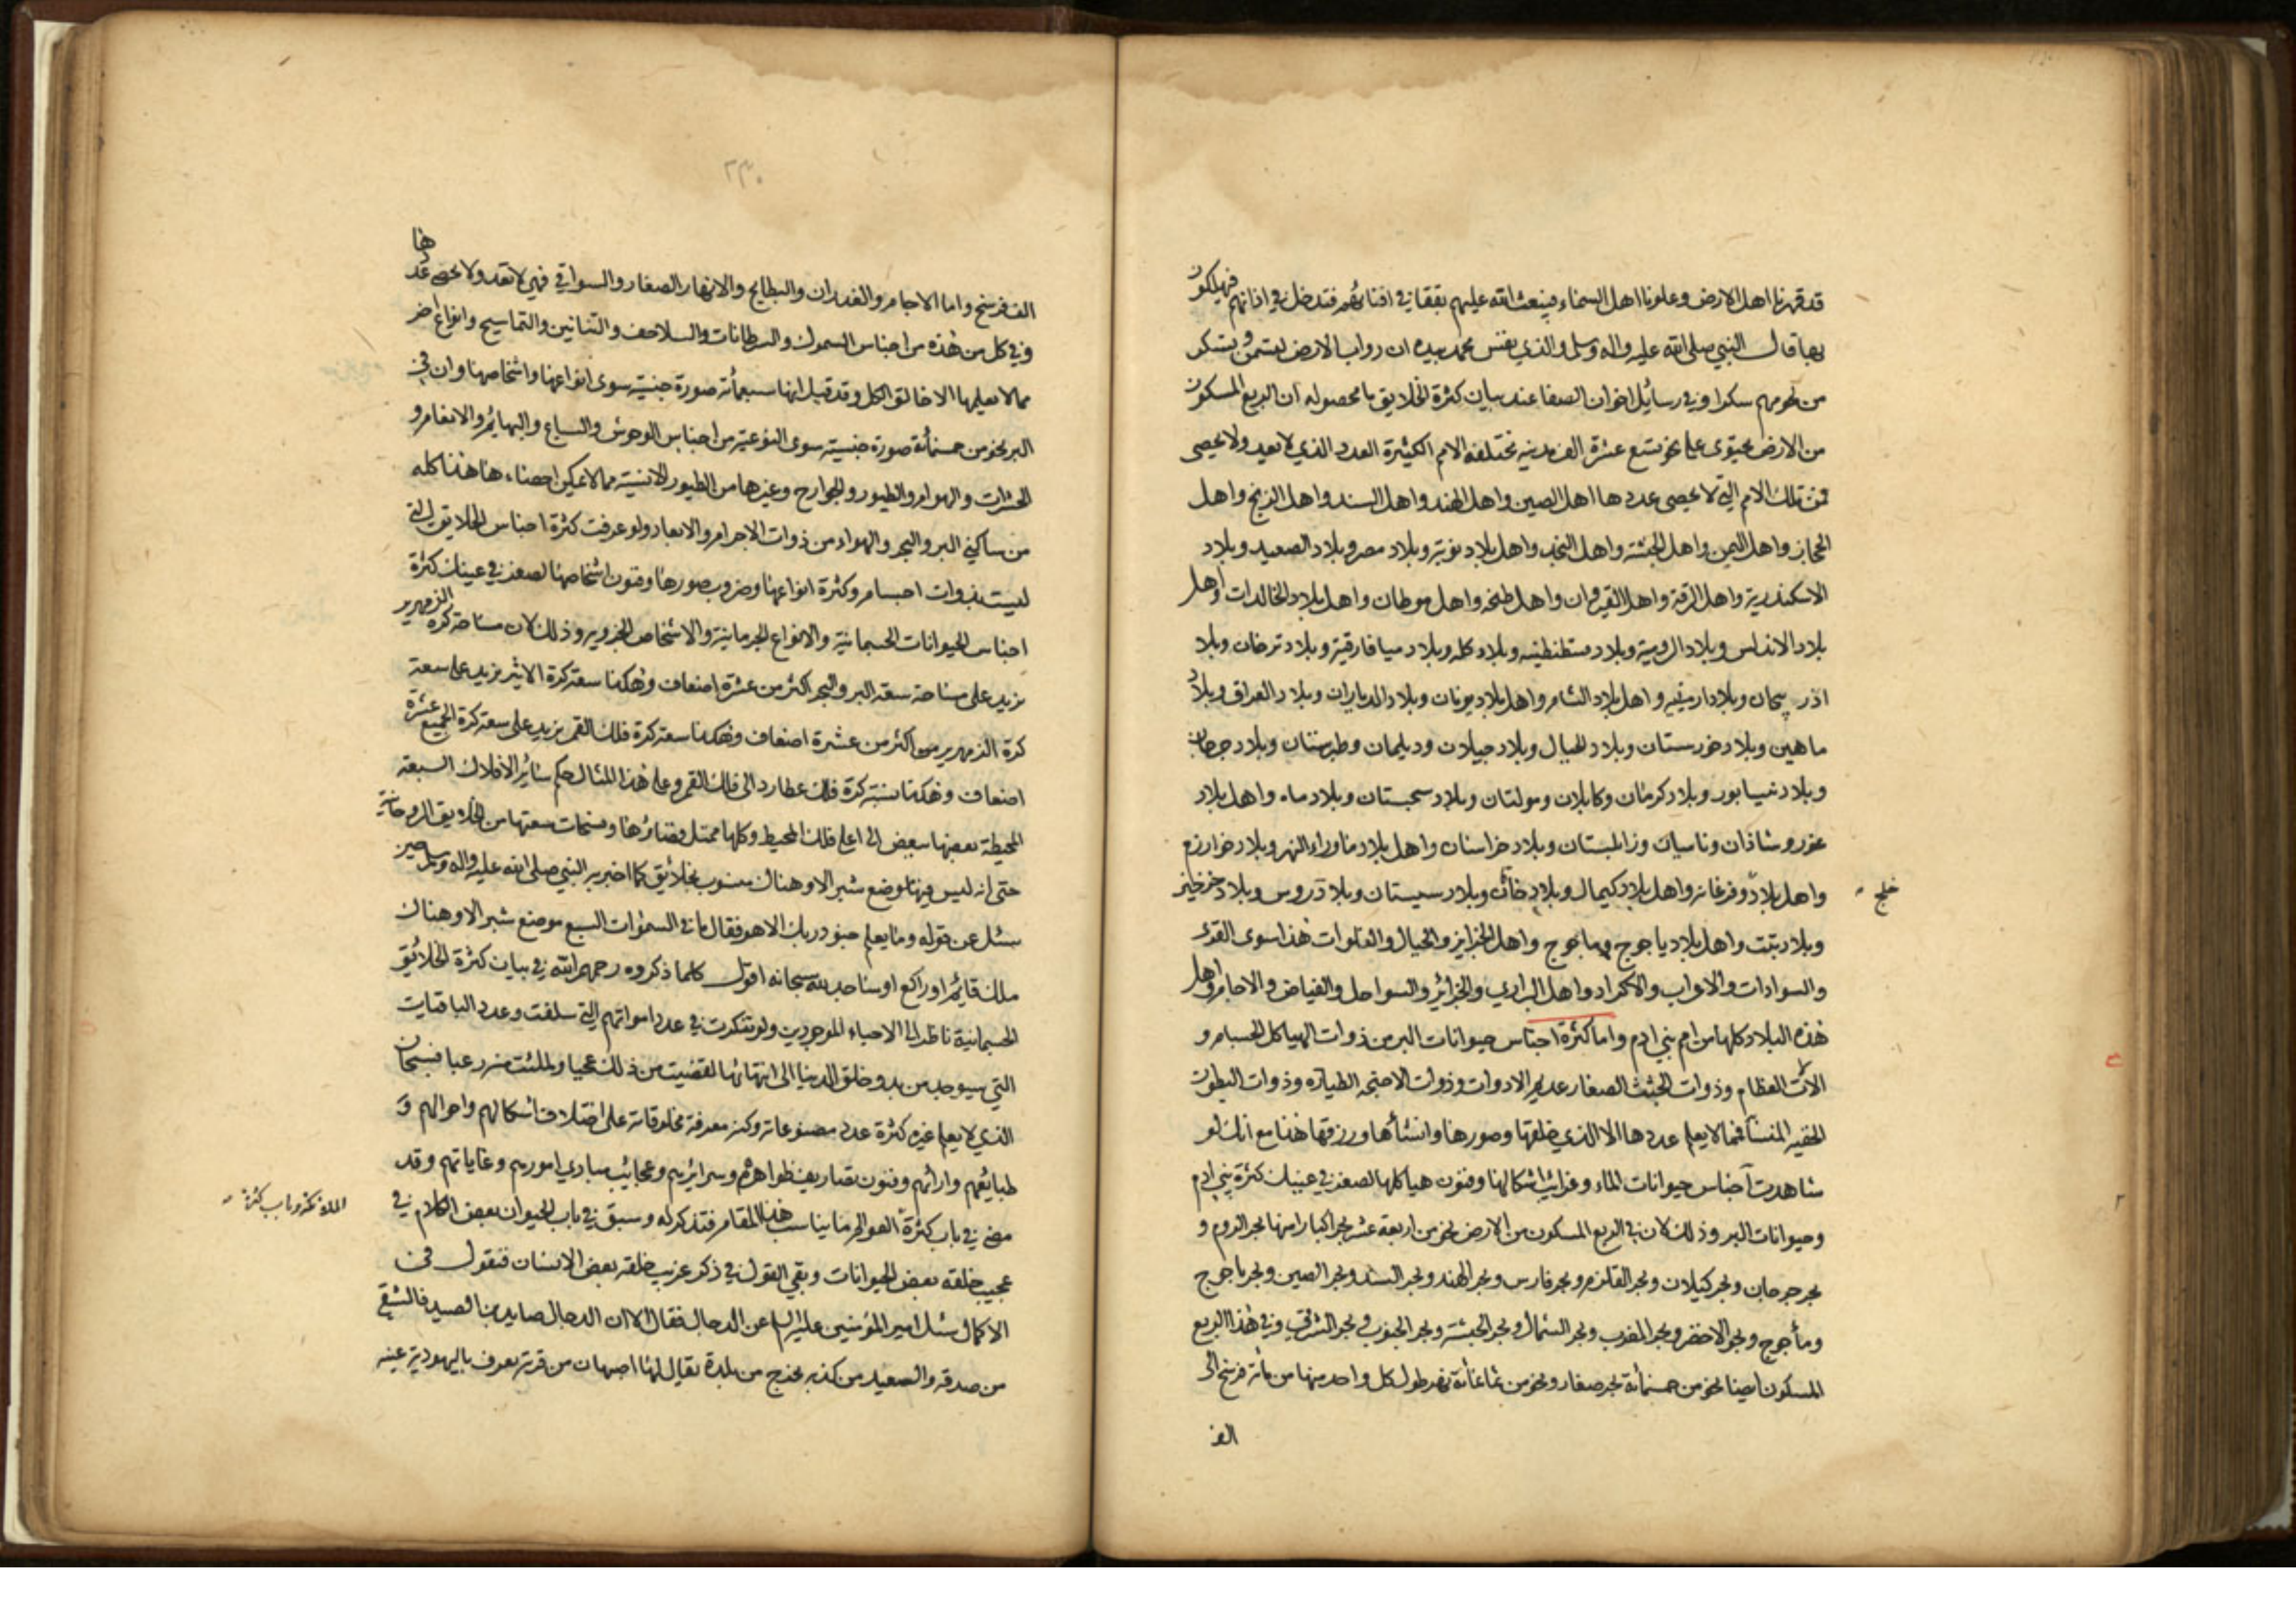 قد قهرنا اهل الارض وعلونا اهل السماء فيبعث الله عليهم نغفا في اقفائهم فتدخل في اذانهم فيهلكون
بها قال النبي صلى الله عليه واله وسلم والذي نفس محمد بيده ان دواب الارض لتسمن وتسكر
من لحومهم سكرا وفي رسائل اخوان الصفا عند بيان كثرة الخلايق ما محصوله ان الربع المسكون
من الارض يحتوى على نحو تسع عشرة الف مدينه مختلفة الامم الكثيرة العدد الذي لا يعد ولا يحصى
فمن تلك الامم التي لا يحصى عددها اهل الصين واهل الهند واهل السند واهل الزنج واهل
الحجاز واهل اليمن واهل الحبشة واهل النجد واهل بلاد نوبة وبلاد مصر وبلاد الصعيد وبلاد
الاسكندرية واهل الرقة واهل القيروان واهل طنجه واهل موطان واهل بلاد الخالدات واهل
بلاد الاندلس وبلاد الرومية وبلاد قسطنطنيه وبلاد كله وبلاد ميافارقية وبلاد ترخان وبلا
اذربيجان وبلاد ارمنيه واهل بلاد الشام واهل بلاد يونان وبلاد الديباران وبلاد العراق وبلاد
ماهين وبلاد خورستان وبلاد الجبال وبلاد جيلان وديلمان وطبرستان وبلاد جرجان
وبلاد نيسابور وبلاد كرمان وكابلان ومولتان وبلاد سجستان وبلاد ماه واهل بلاد
غور وشاذان وناسيان وزابلستان وبلاد خراسان واهل بلاد ماوراء النهر وبلاد خوارزم
واهل بلاد وفرغانه واهل بلاد كيمال وبلاد خاقان وبلاد سيستان وبلاد روس وبلاد خرخيز
خلج
وبلاد تبت واهل بلاد ياجوج وماجوج واهل الجزاير والجبال والفلوات هذا سوى القرى
والسوادات والاعراب والاكراد واهل البراري والجزائر والسواحل والغياض والاجام واهل
هذه البلاد كلها من امم بني ادم واما كثرة اجناس حيوانات البر من ذوات الهياكل الجسام و
الالات العظام وذوات الجثث الصغار عديم الادوات وذوات الاجنحه الطياره وذوات البطون
الخفيه المنسا فمما لا يعلم عددها الا الذي خلقها وصورها وانشأها ورزقها هذا مع انك لو
شاهدت اجناس حيوانات الماء وغرائب اشكالها وفنون هياكلها لصغر في عينيك كثرة بني ادم
وحيوانات البر وذلك لان في الربع المسكون من الارض نحو من اربعة عشر بحرا كبارا منها بحر الروم و
بحر جرجان وبحر كيلان وبحر القلزم وبحر فارس وبحر الهند وبحر السند وبحر الصين وبحر ياجوج
ومأجوج وبحر الاخضر وبحر المغرب وبحر الشمال وبحر الحبشة وبحر الجنوب وبحر الشرقي وفي هذا الربع
المسكون ايضا نحو من خمسمأئة بحر صغار ونحو من ثمانمأئة نهر طول كل واحد منها من مأة فرسخ الى
الف
٢٣٠
الف فرسخ واما الاجام والغدران والبطايح والانهار الصغار والسواقي فهي لا تعد ولا يحصى عددها
وفي كل من هذه من اجناس السموك والسرطانات والسلاحف والتنانين والتماسيح وانواع اخر
مما لا يعلمها الا خالق الكل وقد قيل انها سبعمأئة صورة جنسية سوى انواعها واشخاصها وان في
البر نحو من خمسمأئة صورة جنسية سوى النوعية من اجناس الوحوش والسباع والبهائم والانعام و
الحشرات والهوام والطيور والجوارح وغيرها من الطيور الانسية مما لا يمكن احصاءها هذا كله
من ساكني البر والبحر والهواء من ذوات الاجرام والابعاد ولو عرفت كثرة اجناس الخلايق التي
ليست بذوات اجسام وكثرة انواعها وضروب صورها وفنون اشخاصها لصغر في عينك كثرة
اجناس الحيوانات الجسمانية والانواع الجرمانية والاشخاص الجزويه وذلك لان مساحة كرة الزمهرير
يزيد على مساحة سعة البر والبحر اكثر من عشرة اضعاف وهكذا سعة كرة الاثير يزيد على سعة
كرة الزمهرير اكثر من عشرة اضعاف وهكذا سعة كرة فلك القمر يزيد على سعة كرة الجميع عشرة
اضعاف وهكذا نسبة كرة فلك عطارد الى فلك القمر وعلى هذا المثال حكم سائر الافلاك السبعه
المحيطة بعضها ببعض الى اعلى فلك المحيط وكلها ممتل فضاؤها ومسحات سعتها من الخلايق الروحانية
حتى انه ليس فيها موضع شبر الا وهناك منسوب بخلائق كما اخبر به النبي صلى الله عليه واله وسلم حين
سئل عن قوله وما يعلم جنود ربك الا هو فقال ما في السموات السبع موضع شبر الا وهناك
ملك قايم او راكع او ساجد لله سبحانه اقول كلما ذكروه رحمهم الله في بيان كثرة الخلائق
الجسمانية ناظر الى الاحياء الموجودين ولو تفكرت في عدد امواتهم التي سلفت وعدد الباقيات
التي سيوجد من بدو خلق الدنيا الى انتهائها لقضيت من ذلك عجبا ولملئت منه رعبا فسبحان
الذي لا يعلم غيره كثرة عدد مصنوعاته وكنه معرفة مخلوقاته على اختلاف اشكالهم واحوالهم و
طبايعهم وارائهم وفنون تصاريف ظواهرهم وسرايرهم وعجائب مبادي امورهم وغاياتهم وقد
مضى في باب كثرة العوالم ما يناسب هذا المقام فتذكر له وسبق في باب الحيوان بعض الكلام في
عجيب خلقه بعض الحيوانات وبقي القول في ذكر غريب خلقه بعض الانسان فنقول في
الاكمال سئل امير المؤمنين عليه السلام عن الدجال فقال الا ان الدجال صايد بن الصيد فالشقي
من صدقه والسعيد من كذبه يخرج من بلدة يقال لها اصبهان من قرية يعرف باليهودية عينه